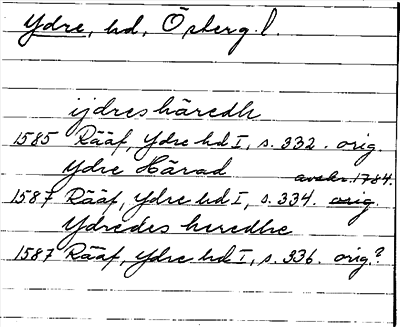 Ydre, hd, Österg.l.
ijdres häredh
1585 Rääf, Ydre hd I, s. 332. orig.
Ydre Härad avskr. 1784.
1587 Rääf, Ydre hd I, s. 334. orig.
Ydredes heredhe
1587 Rääf, Ydre hd I, s. 336. orig.?